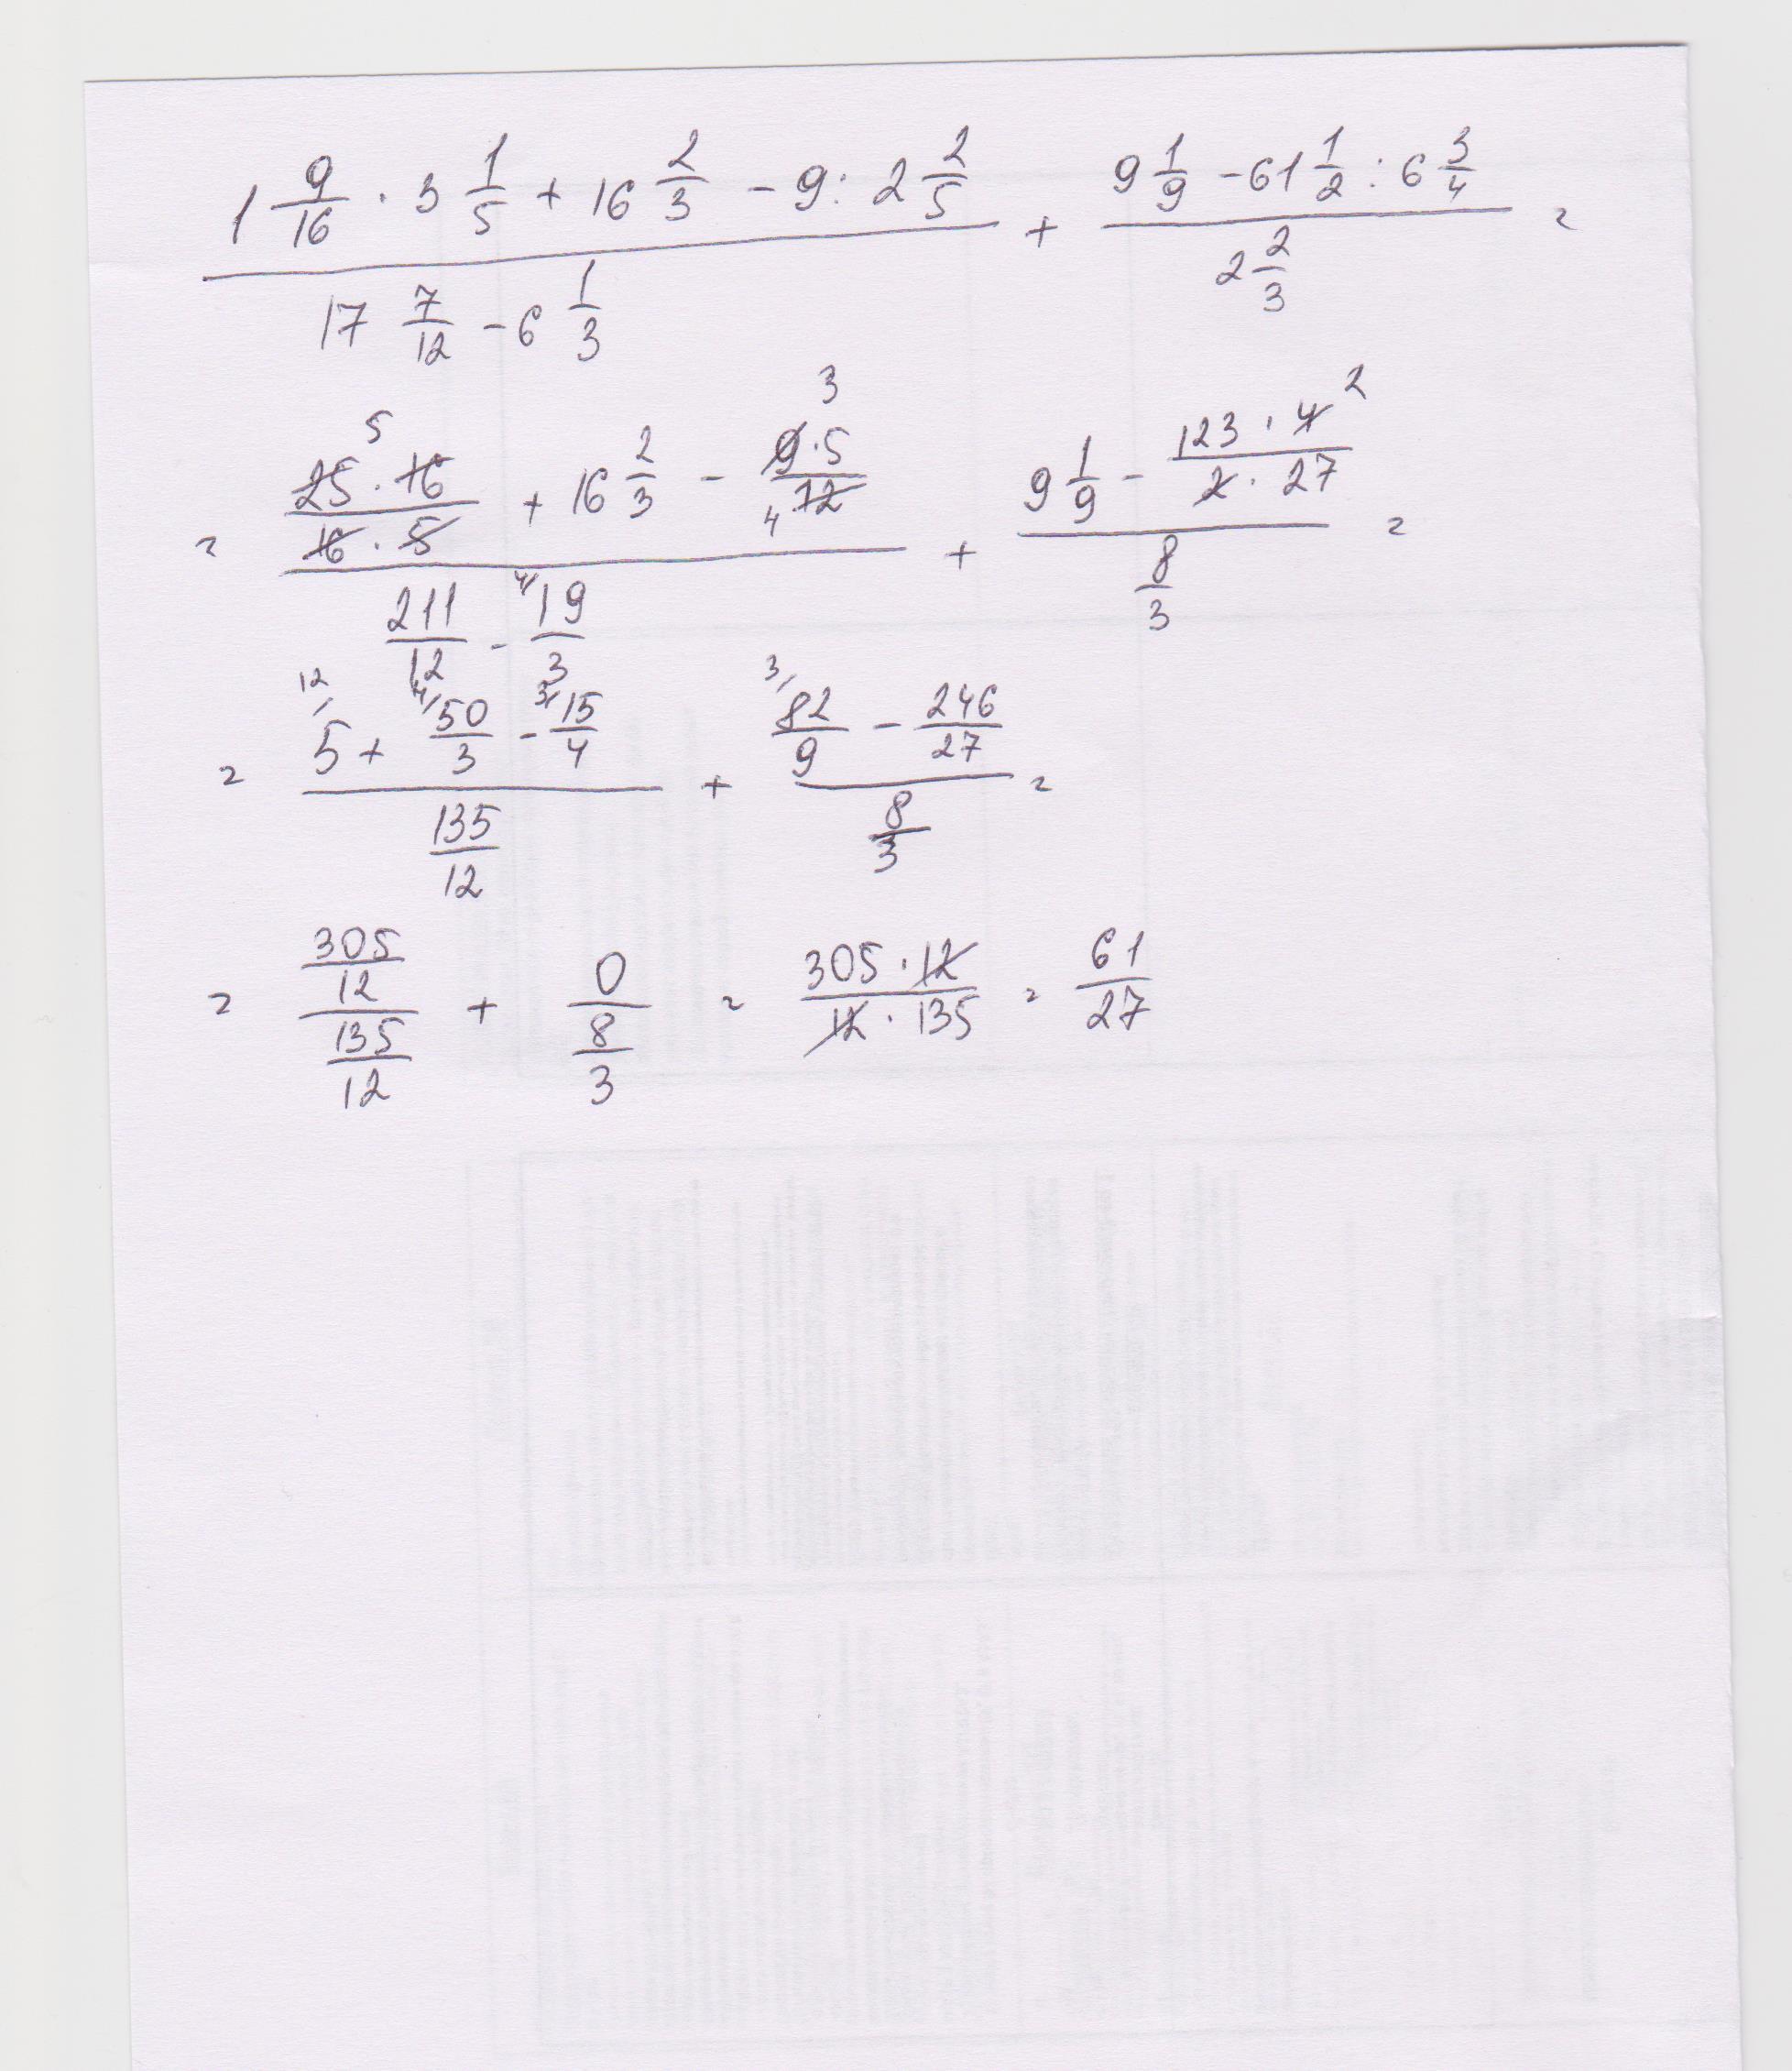 (1 9/16 · 3 1/5 + 16 2/3 - 9 : 2 2/5) / (17 7/12 - 6 1/3) + (9 1/9 - 61 1/2 : 6 3/4) / (2 2/3) =
= ((25 · 16)/(16 · 5) 5 + 16 2/3 - (9 · 5)/12 3 4) / (211/12 - 4/ 19/3) + (9 1/9 - (123 · 4)/(2 · 27) 2) / (8/3) =
= (12/ 5 + 4/ 50/3 - 3/ 15/4) / (135/12) + (3/ 82/9 - 246/27) / (8/3) =
= (305/12) / (135/12) + 0 / (8/3) = (305 · 12)/(12 · 135) = 61/27